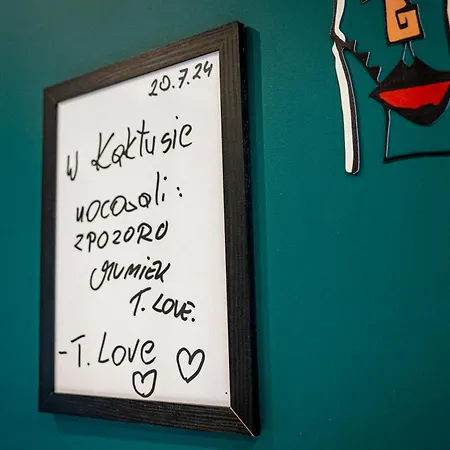 20.7.24
W Kąktusie
nocowali:
ZPOZORO
MUMIEK
T. LOVE.
- T. Love